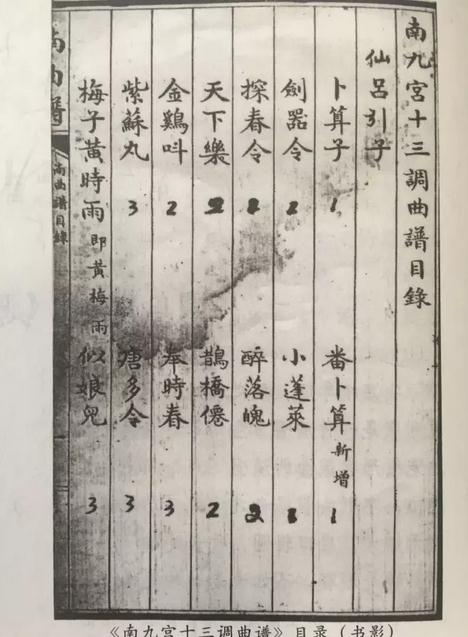 南九宮十三調曲譜目錄
仙呂引子
卜算子 1 番卜算 新增 1
劍器令 2 小蓬萊
探春令 2 醉落魄 2
天下樂 2 鵲橋僊 2
金鷄呌 2 奉時春 3
紫蘇丸 3 唐多令 3
梅子黃時雨 即黃梅雨 似娘兒 3
南曲譜
南曲譜目錄
《南九宫十三调曲谱》目录（书影）